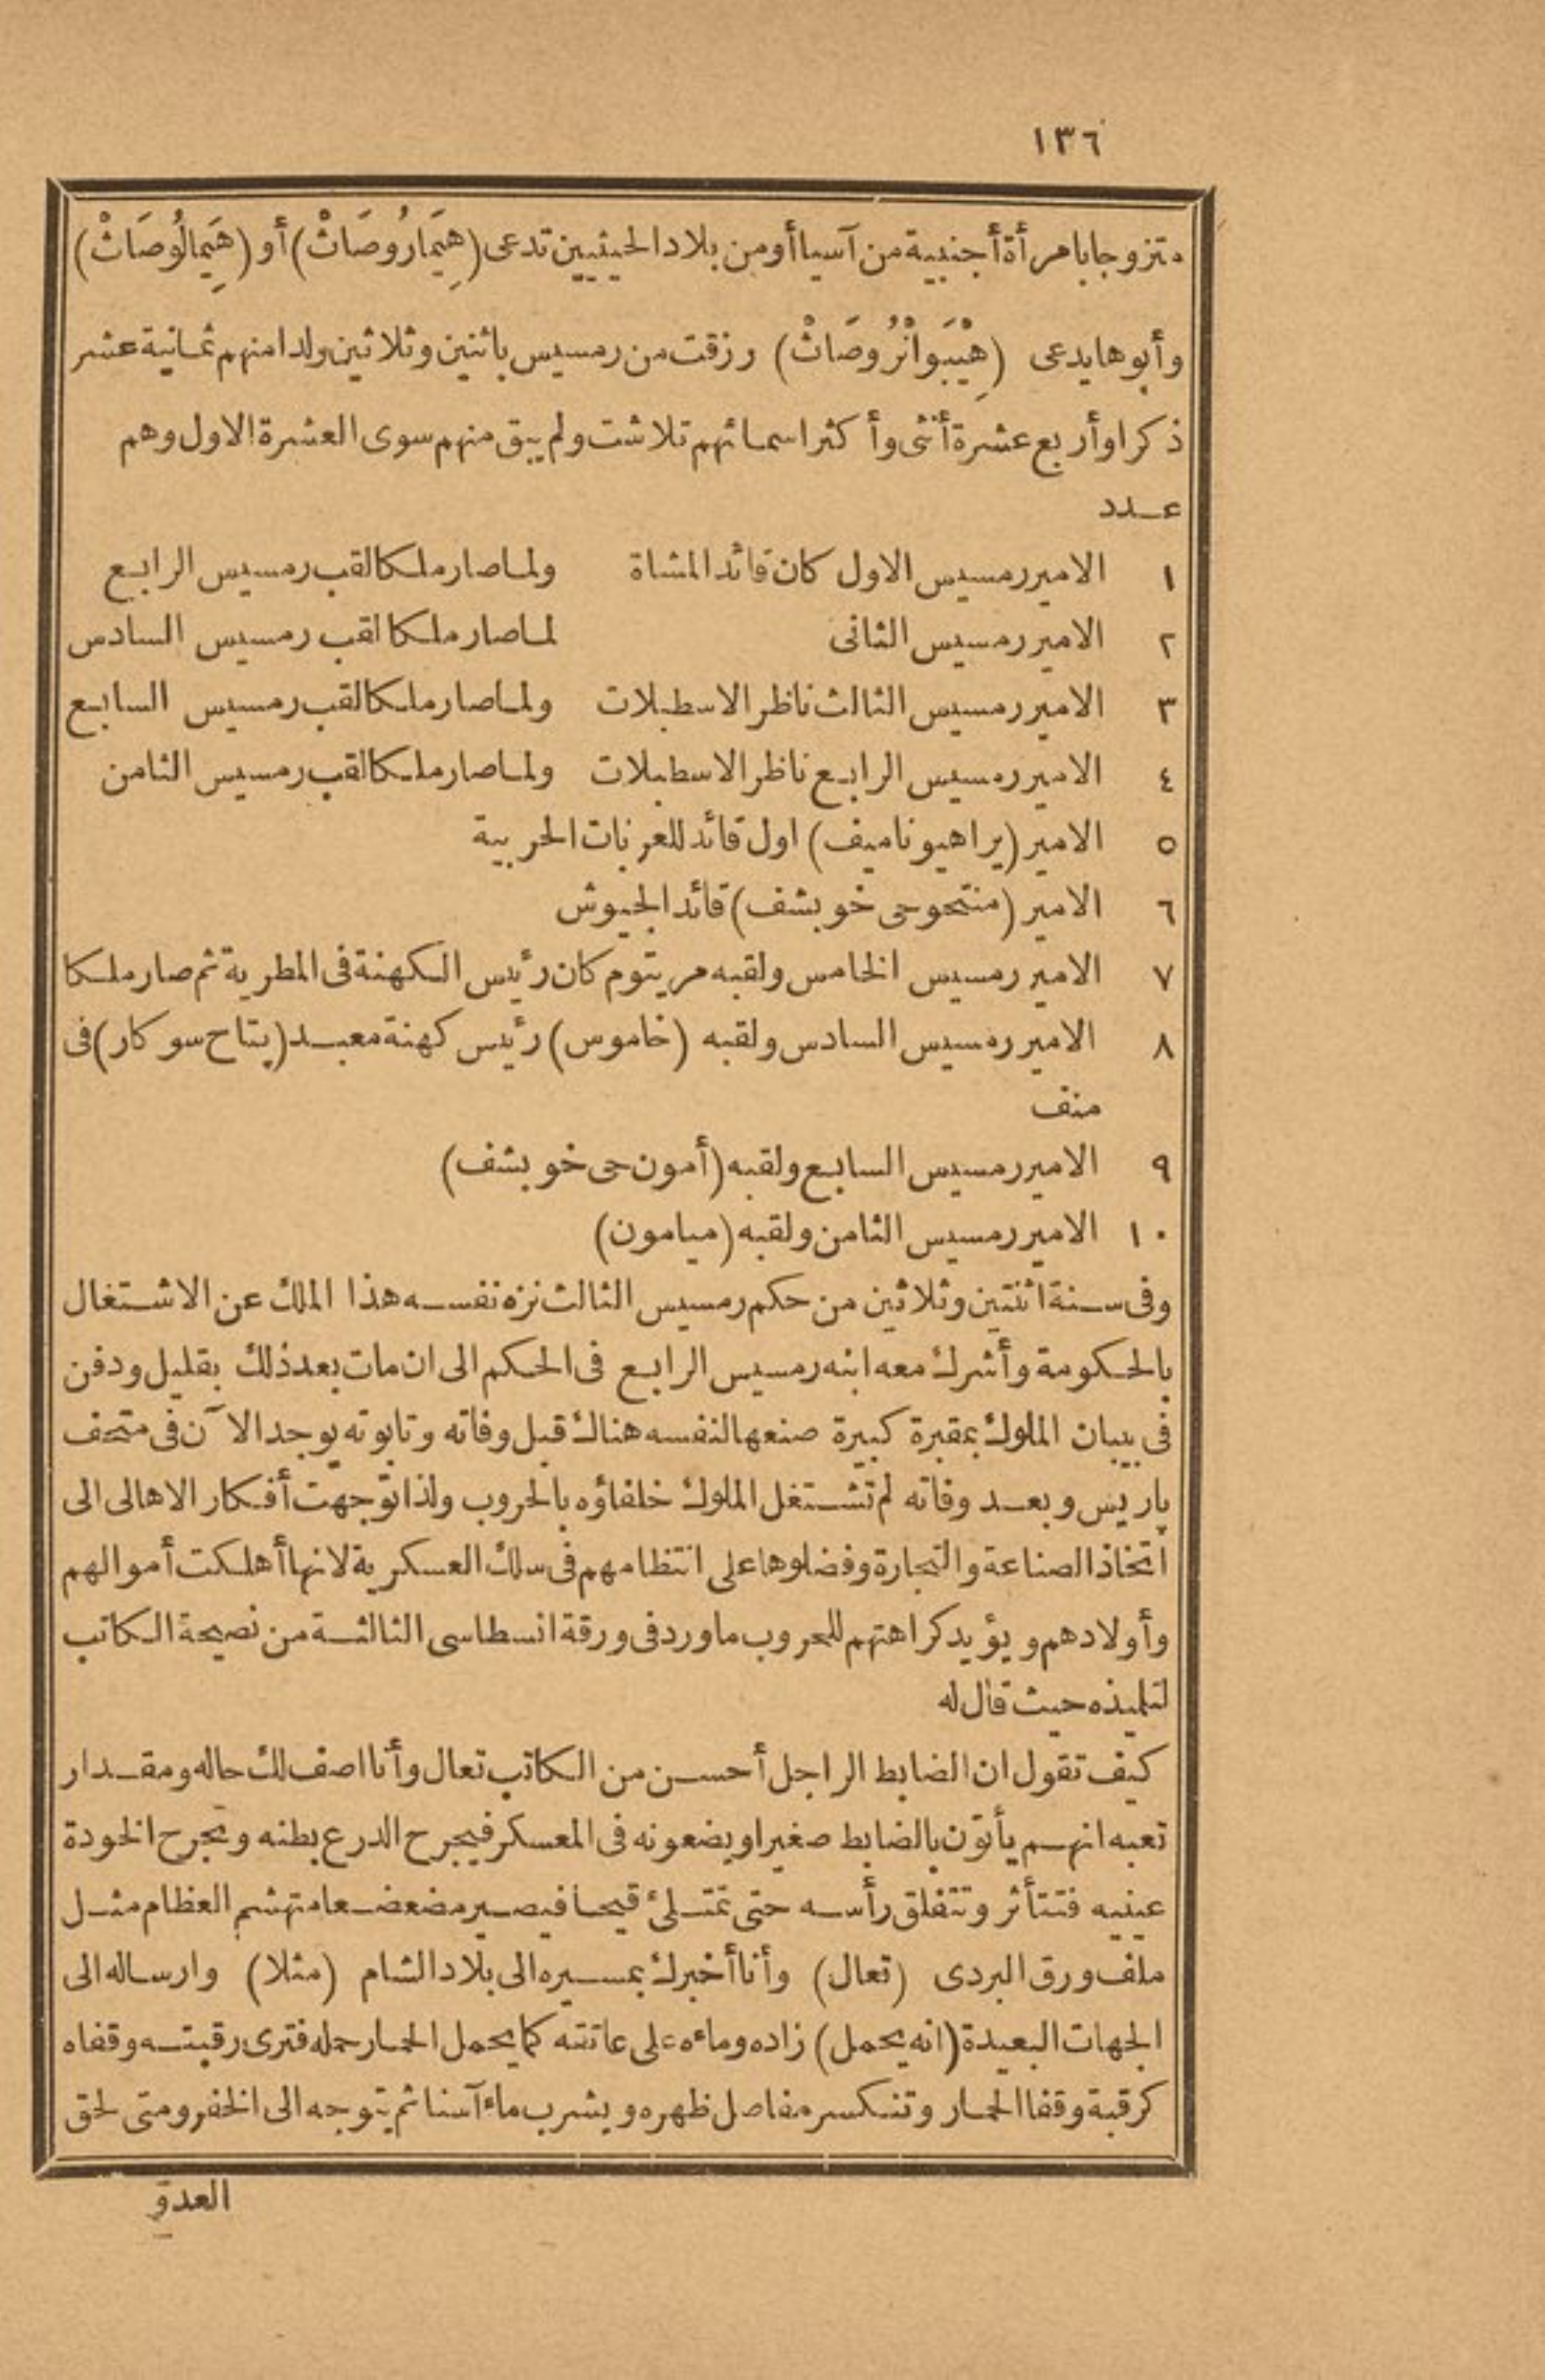 ١٣٦
متزوجا بامرأة أجنبية من آسيا أومن بلاد الحيثيين تدعى (هِيَمَارُوصَاتْ) أو (هَيِمالُوصَاتْ)
وأبوها يدعى (هِيْبَوانْرُوصَاتْ) رزقت من رمسيس باثنين وثلاثين ولدا منهم ثمانية عشر
ذكرا وأربع عشرة أنثى وأكثر اسمائهم تلاشت ولم يبق منهم سوى العشرة الاول وهم
عدد
١ الامير رمسيس الاول كان قائد المشاة ولما صار ملكا لقب رمسيس الرابع
٢ الامير رمسيس الثانى لما صار ملكا لقب رمسيس السادس
٣ الامير رمسيس الثالث ناظر الاسطبلات ولما صار ملكا لقب رمسيس السابع
٤ الامير رمسيس الرابع ناظر الاسطبلات ولما صار ملكا لقب رمسيس الثامن
٥ الامير (براهيوناميف) اول قائد للعربات الحربية
٦ الامير (منتحوحى خوبشف) قائد الجيوش
٧ الامير رمسيس الخامس ولقبه مريتوم كان رئيس الكهنة فى المطرية ثم صار ملكا
٨ الامير رمسيس السادس ولقبه (خاموس) رئيس كهنة معبد (پتاح سوكار) فى
منف
٩ الامير رمسيس السابع ولقبه (أمون حى خوبشف)
١٠ الامير رمسيس الثامن ولقبه (ميامون)
وفى سنة اثنتين وثلاثين من حكم رمسيس الثالث نزه نفسه هذا الملك عن الاشتغال
بالحكومة وأشرك معه ابنه رمسيس الرابع فى الحكم الى ان مات بعد ذلك بقليل ودفن
فى بيبان الملوك بمقبرة كبيرة صنعها لنفسه هناك قبل وفاته وتابوته يوجد الآن فى متحف
پاريس وبعد وفاته لم تشتغل الملوك خلفاؤه بالحروب ولذا توّجهت أفكار الاهالى الى
اتخاذ الصناعة والتجارة وفضلوها على انتظامهم فى سلك العسكرية لانها أهلكت أموالهم
وأولادهم ويؤيد كراهتهم للحروب ماورد فى ورقة انسطاسى الثالثة من نصيحة الكاتب
لتلميذه حيث قال له
كيف تقول ان الضابط الراجل أحسن من الكاتب تعال وأنا اصف لك حاله ومقدار
تعبه انهم يأتوّن بالضابط صغيرا ويضعونه فى المعسكر فيجرح الدرع بطنه وتجرح الخودة
عينيه فتتأثر وتتفلق رأسه حتى تمتلئ قيحا فيصير مضعضعا متهشم العظام مثل
ملف ورق البردى (تعال) وأنا أخبرك بمسيره الى بلاد الشام (مثلا) وارساله الى
الجهات البعيدة (انه يحمل) زاده وماءه على عاتقه كما يحمل الحمار حمله فترى رقبته وقفاه
كرقبة وقفا الحمار وتنكسر مفاصل ظهره ويشرب ماء آسنا ثم يتوجه الى الخفر ومتى لحق
العدوّ